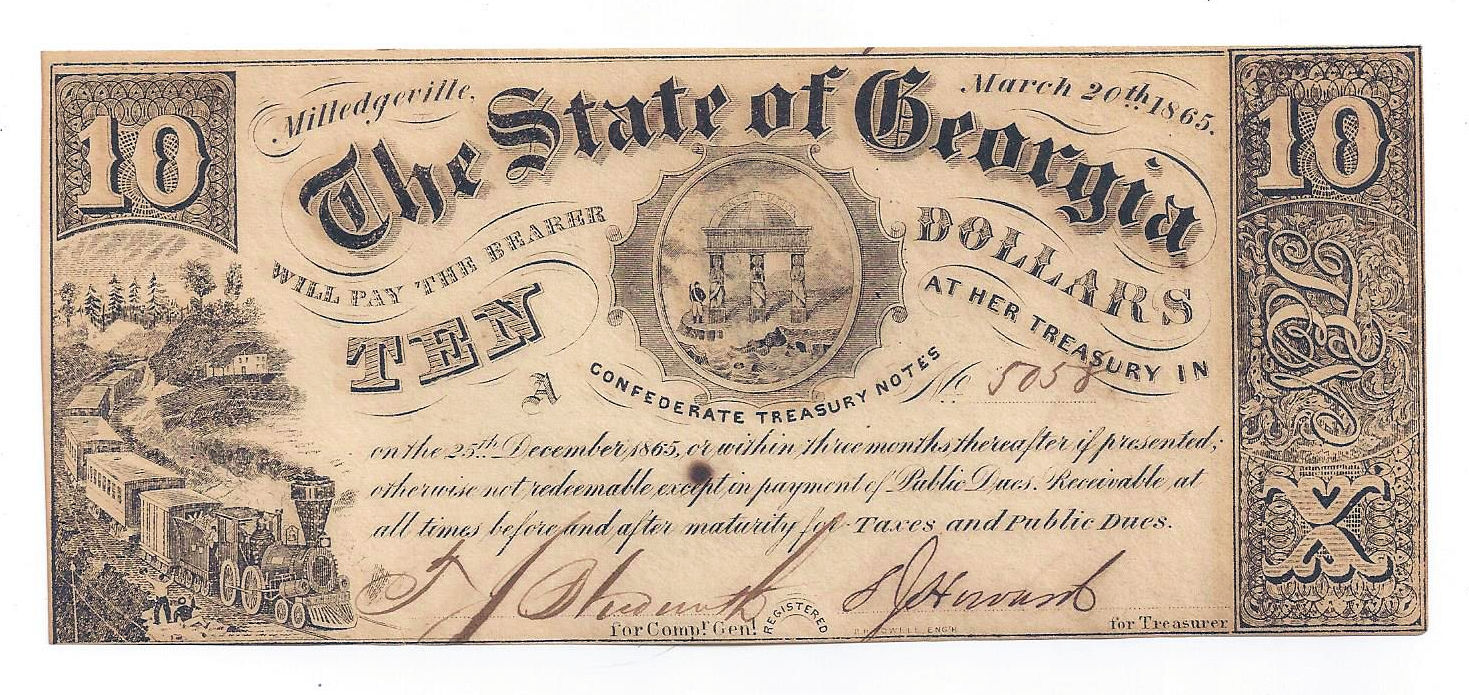 10
Milledgeville,
March 20th 1865.
10
The State of Georgia
WILL PAY THE BEARER
TEN
DOLLARS
AT HER TREASURY IN
CONFEDERATE TREASURY NOTES
A
No 5058
on the 25th December 1865, or within three months thereafter if presented;
otherwise not redeemable except in payment of Public Dues. Receivable at
all times before and after maturity for Taxes and Public Dues.
for Compr Genl
REGISTERED
ENG'R
for Treasurer
X